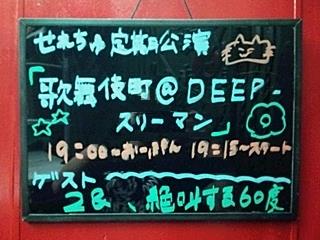 せれちゅ定期公演
「歌舞伎町@DEEP-
スリーマン」
19:00〜おーぷん 19:15〜スタート
ゲスト
2B、絶叫する60度